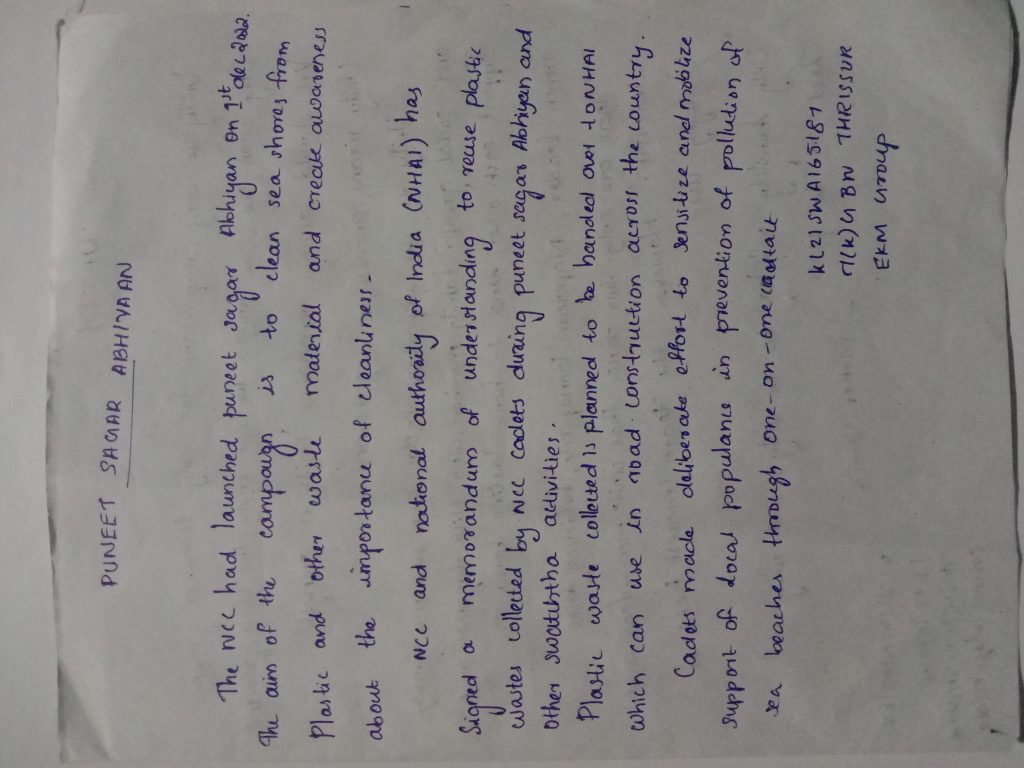 PUNEET SAGAR ABHIYAAN
The NCC had launched puneet sagar Abhiyan on 1st dec 2022.
The aim of the campaign is to clean sea shores from
Plastic and other waste material and create awareness
about the importance of cleanliness.
NCC and national authority of India (NHAI) has
Signed a memorandum of understanding to reuse plastic
wastes collected by NCC cadets during puneet sagar Abhiyan and
other swatchtha activities.
Plastic waste collected is planned to be handed over to NHAI
which can use in road construction across the country.
Cadets made deliberate effort to sensitize and mobilize
support of local populance in prevention of pollution of
sea beaches through one-on-one
KL21SWA165187
7(K)G BN THRISSUR
EKM Group